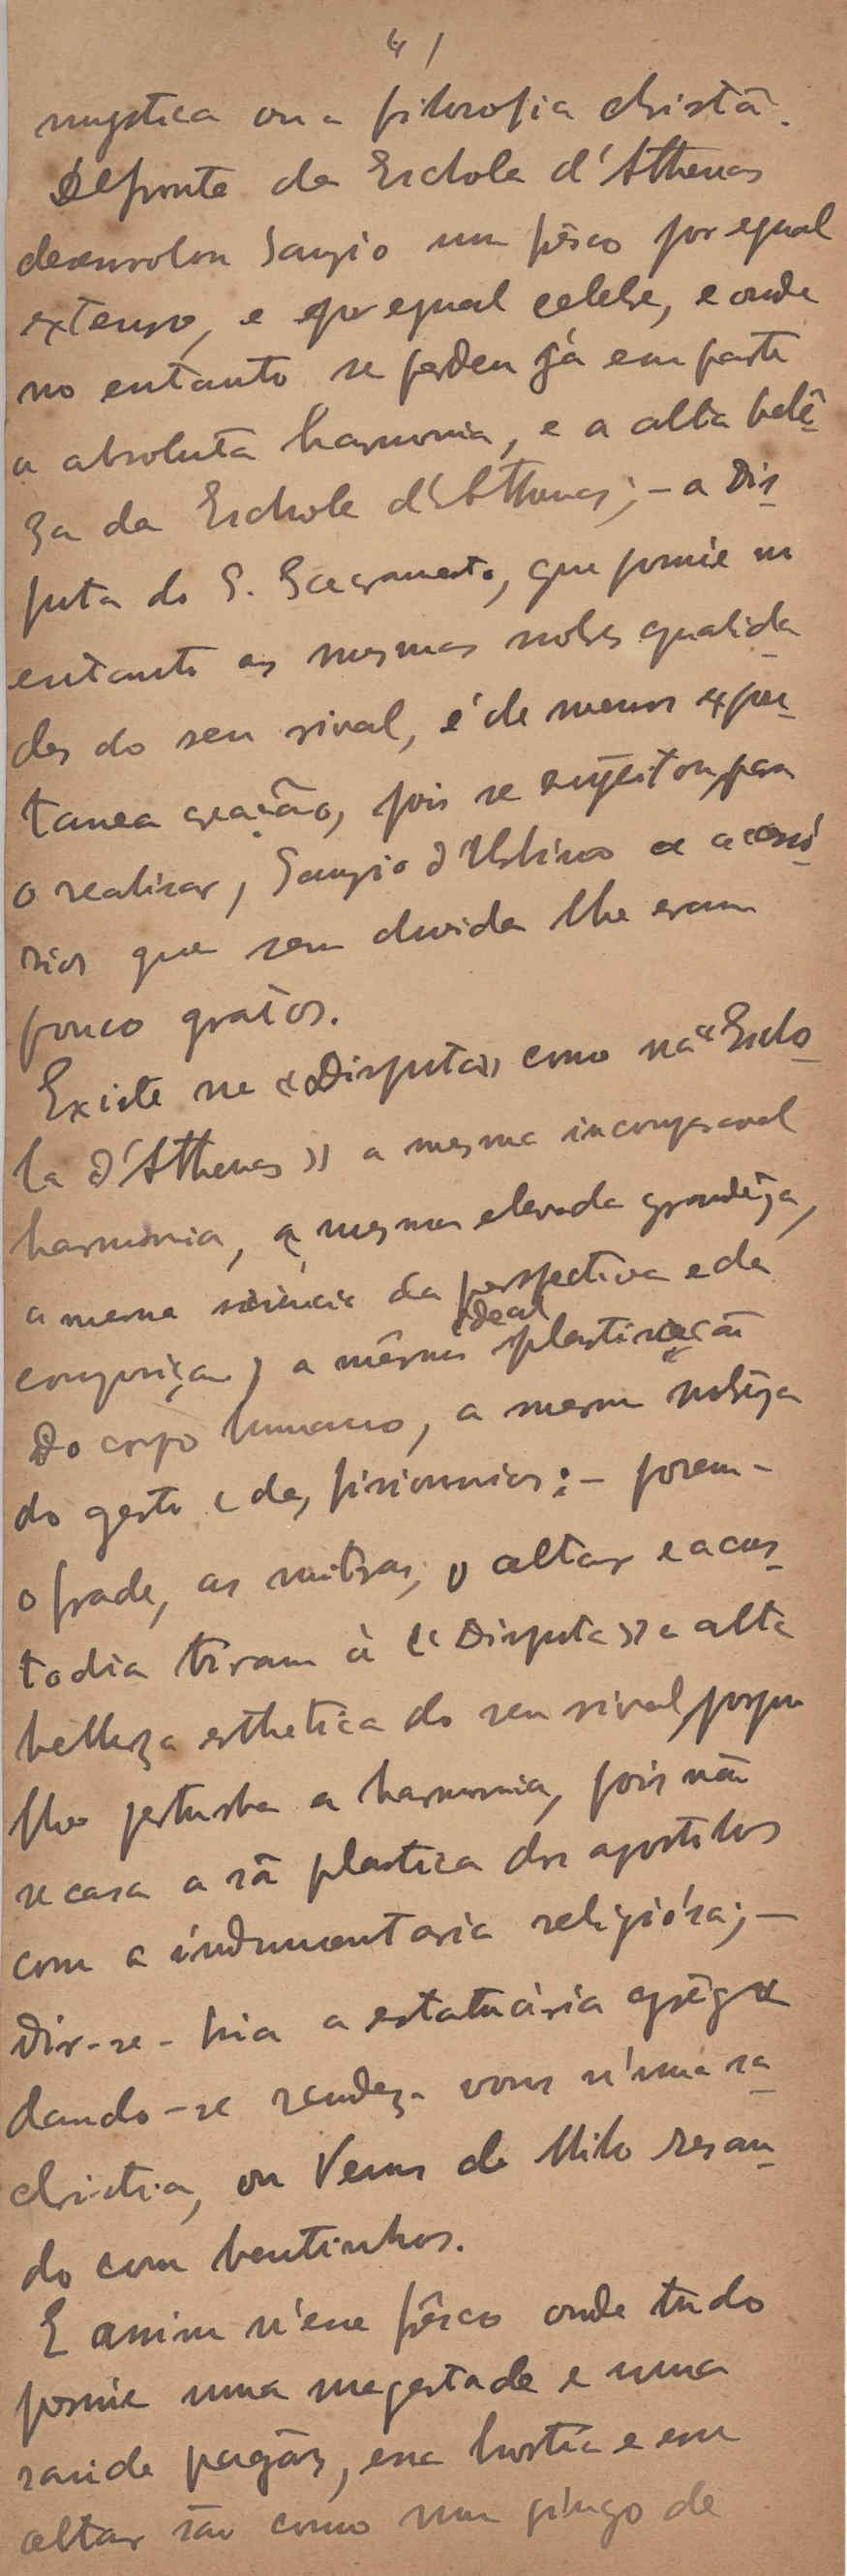 41
mystica ou a filosofia christã.
Défronte da Eschola d'Athenas
desenrolou Sanzio um fêsco por egual
extenso, e por egual celebe, e onde
no entanto se perdeu já em parte
a absoluta harmonia, e a alta belê-
za da Eschola d'Athenas; - a Dis-
puta do S. Sacramento, que possúe no
entanto as mesmas nobes qualida-
des do seu rival, é de menos espon-
tanea creação, pois se sujeitou, para
o realisar, Sanzio d'Urbino a acessó-
rios que sem duvida lhe eram
pouco gratos.
Existe na «Disputa» como na «Escho-
la d'Athenas» a mesma incomparavel
harmonia, a mesma elevada grandêza,
a mesma sciencia da perspectiva e da
composiçam, a mêsma ideal plastisação
do corpo humano, a mesma nobrêza
do gesto e das fisionomias: - porem -
o frade, as mitras, o altar e a cus-
todia tiram à «Disputa» a alta
belleza esthetica do seu rival, porque
lhe perturba a harmonia, pois não
se casa a sã plastica dos apostolos
com a indumentaria religiósa; -
dir-se-hia a estatuária grêga
dando-se rendez-vous n'uma sa-
christia, ou Venus de Milo resan-
do com bentinhos.
E assim n'esse fêsco onde tudo
possúe uma magestade e uma
saude pagãs, essa hostia e esse
altar são como um pingo de